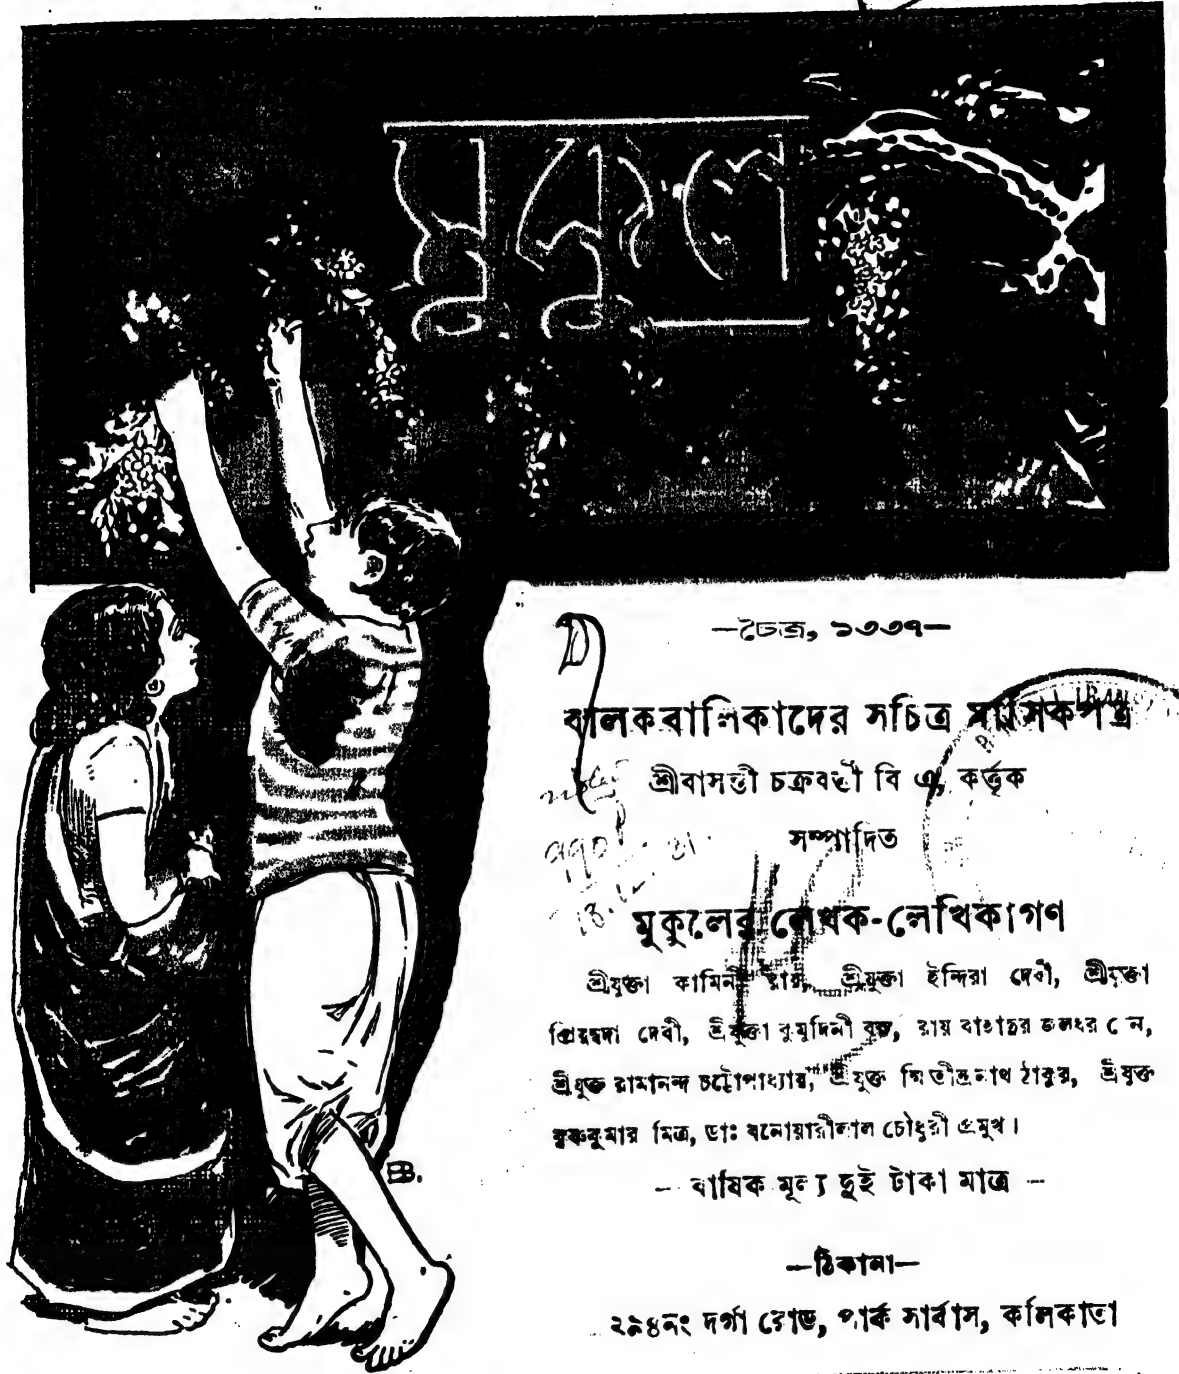 মুকুল
—চৈত্র, ১৩৩৭—
বালকবালিকাদের সচিত্র মাসিকপত্র
শ্রীবাসন্তী চক্রবর্ত্তী বি এ, কর্ত্তৃক
সম্পাদিত
মুকুলের লেখক-লেখিকাগণ
শ্রীযুক্তা কামিনী রায়, শ্রীযুক্তা ইন্দিরা দেবী, শ্রীযুক্তা
প্রিয়ম্বদা দেবী, শ্রীযুক্তা কুমুদিনী বসু, রায় বাহাদুর জলধর সেন,
শ্রীযুক্ত রামানন্দ চট্টোপাধ্যায়, শ্রীযুক্ত ক্ষিতীন্দ্রনাথ ঠাকুর, শ্রীযুক্ত
কৃষ্ণকুমার মিত্র, ডাঃ বনোয়ারীলাল চৌধুরী প্রমুখ।
— বার্ষিক মূল্য দুই টাকা মাত্র —
—ঠিকানা—
২৯৪নং দর্গা রোড, পার্ক সার্কাস, কলিকাতা
BB.